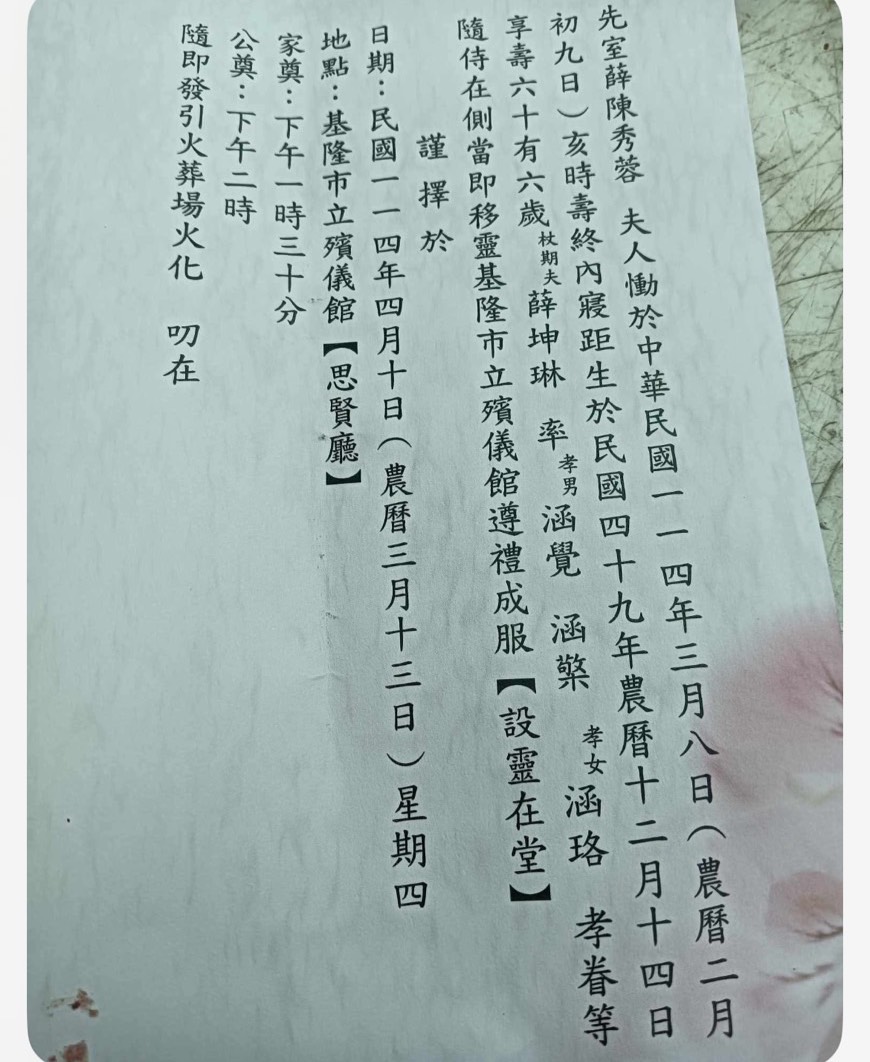 先室薛陳秀蓉　夫人慟於中華民國一一四年三月八日（農曆二月
初九日）亥時壽終內寢距生於民國四十九年農曆十二月十四日
享壽六十有六歲杖期夫薛坤琳　率孝男涵覺　涵棨　孝女涵珞　孝眷等
隨侍在側當即移靈基隆市立殯儀館遵禮成服【設靈在堂】
謹擇於
日期：民國一一四年四月十日（農曆三月十三日）星期四
地點：基隆市立殯儀館【思賢廳】
家奠：下午一時三十分
公奠：下午二時
隨即發引火葬場火化　叨在